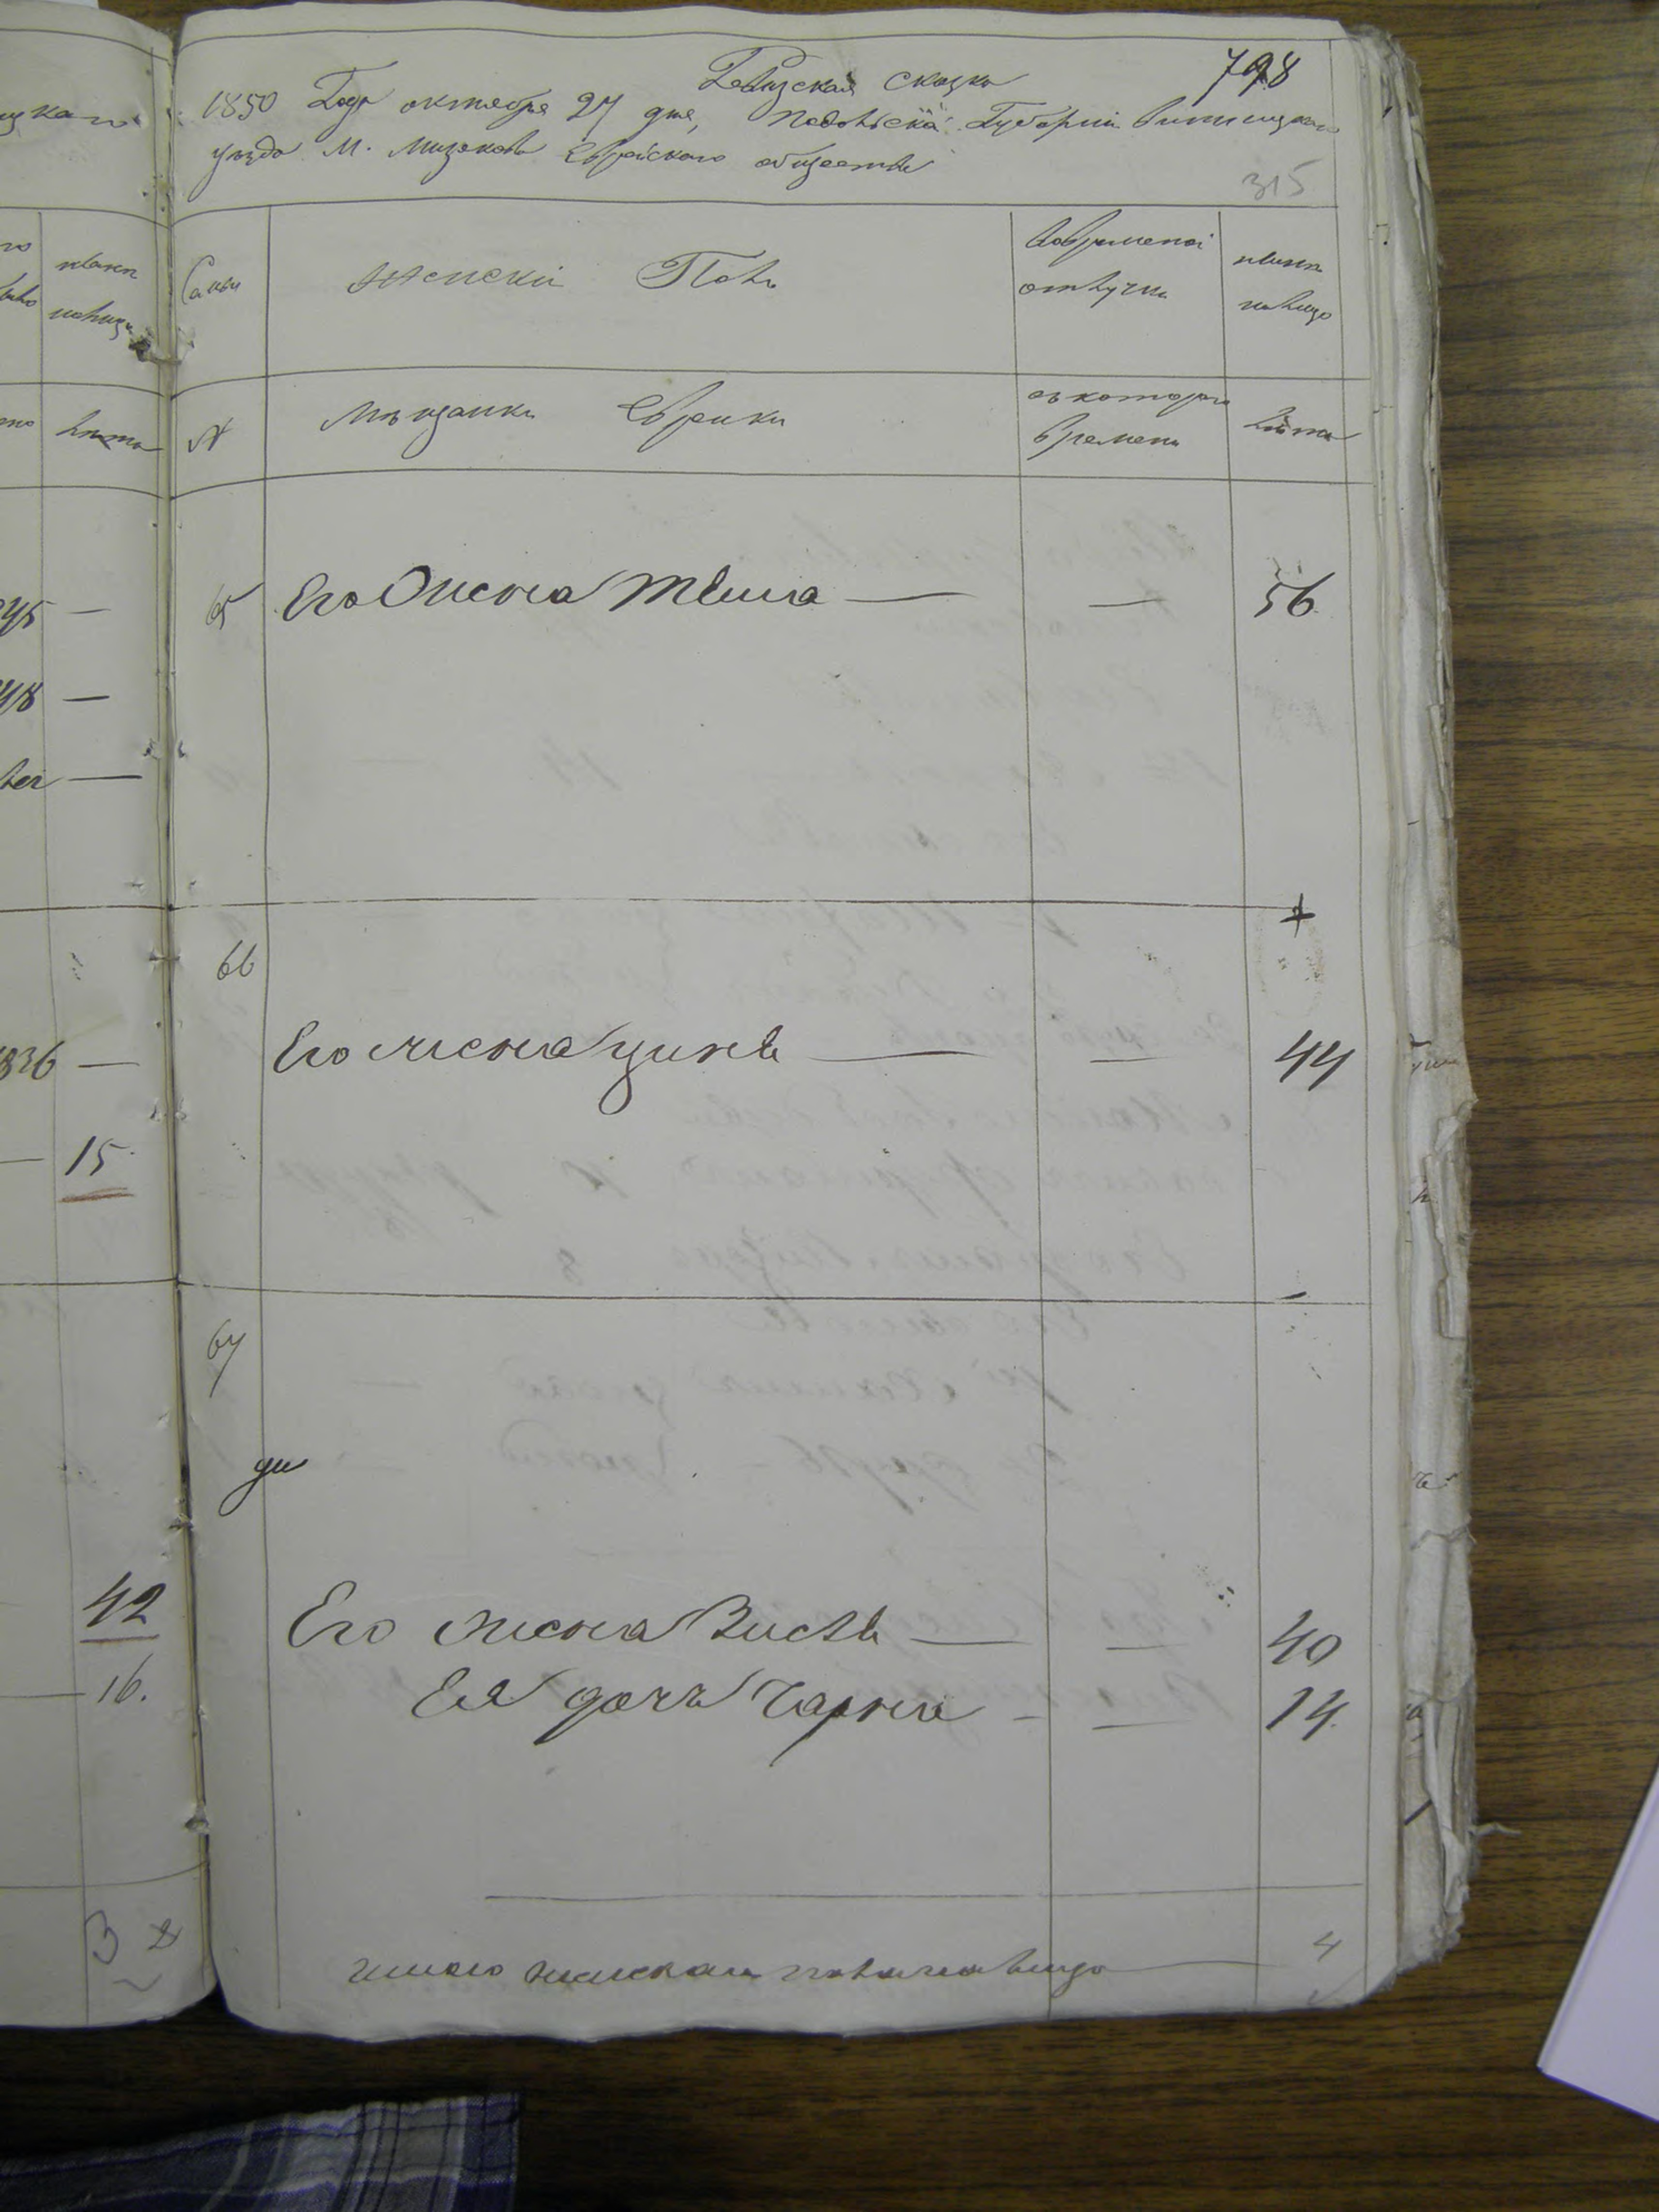 Ревизская сказка 798
1850 Года октября 27 дня, Подольской Губернии Винницкаго
уезда М. Мизякова Еврейского общества
315
Семьи
Женский Полъ
Вовременной
отлучки
ныне
налицо
№
Мещанки Еврейки
съ котораго
времени
Лета
65 Его Жена Твила — — 56
66
Его жена Ципа — — 44
67
Его жена Висля — — 40
Ея дочь Чарна — — 14
Итого женскаго пола налицо 4
45 —
48 —
836 —
15
42
16.
3